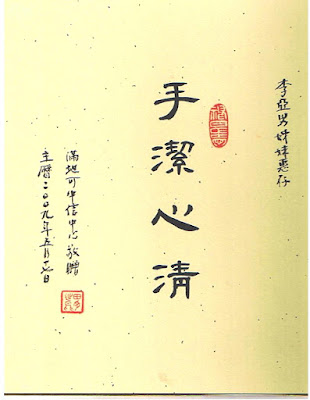 李亞男姊妹惠存
手潔心清
滿地可中信中心敬贈
主曆二〇〇九年五月十七日